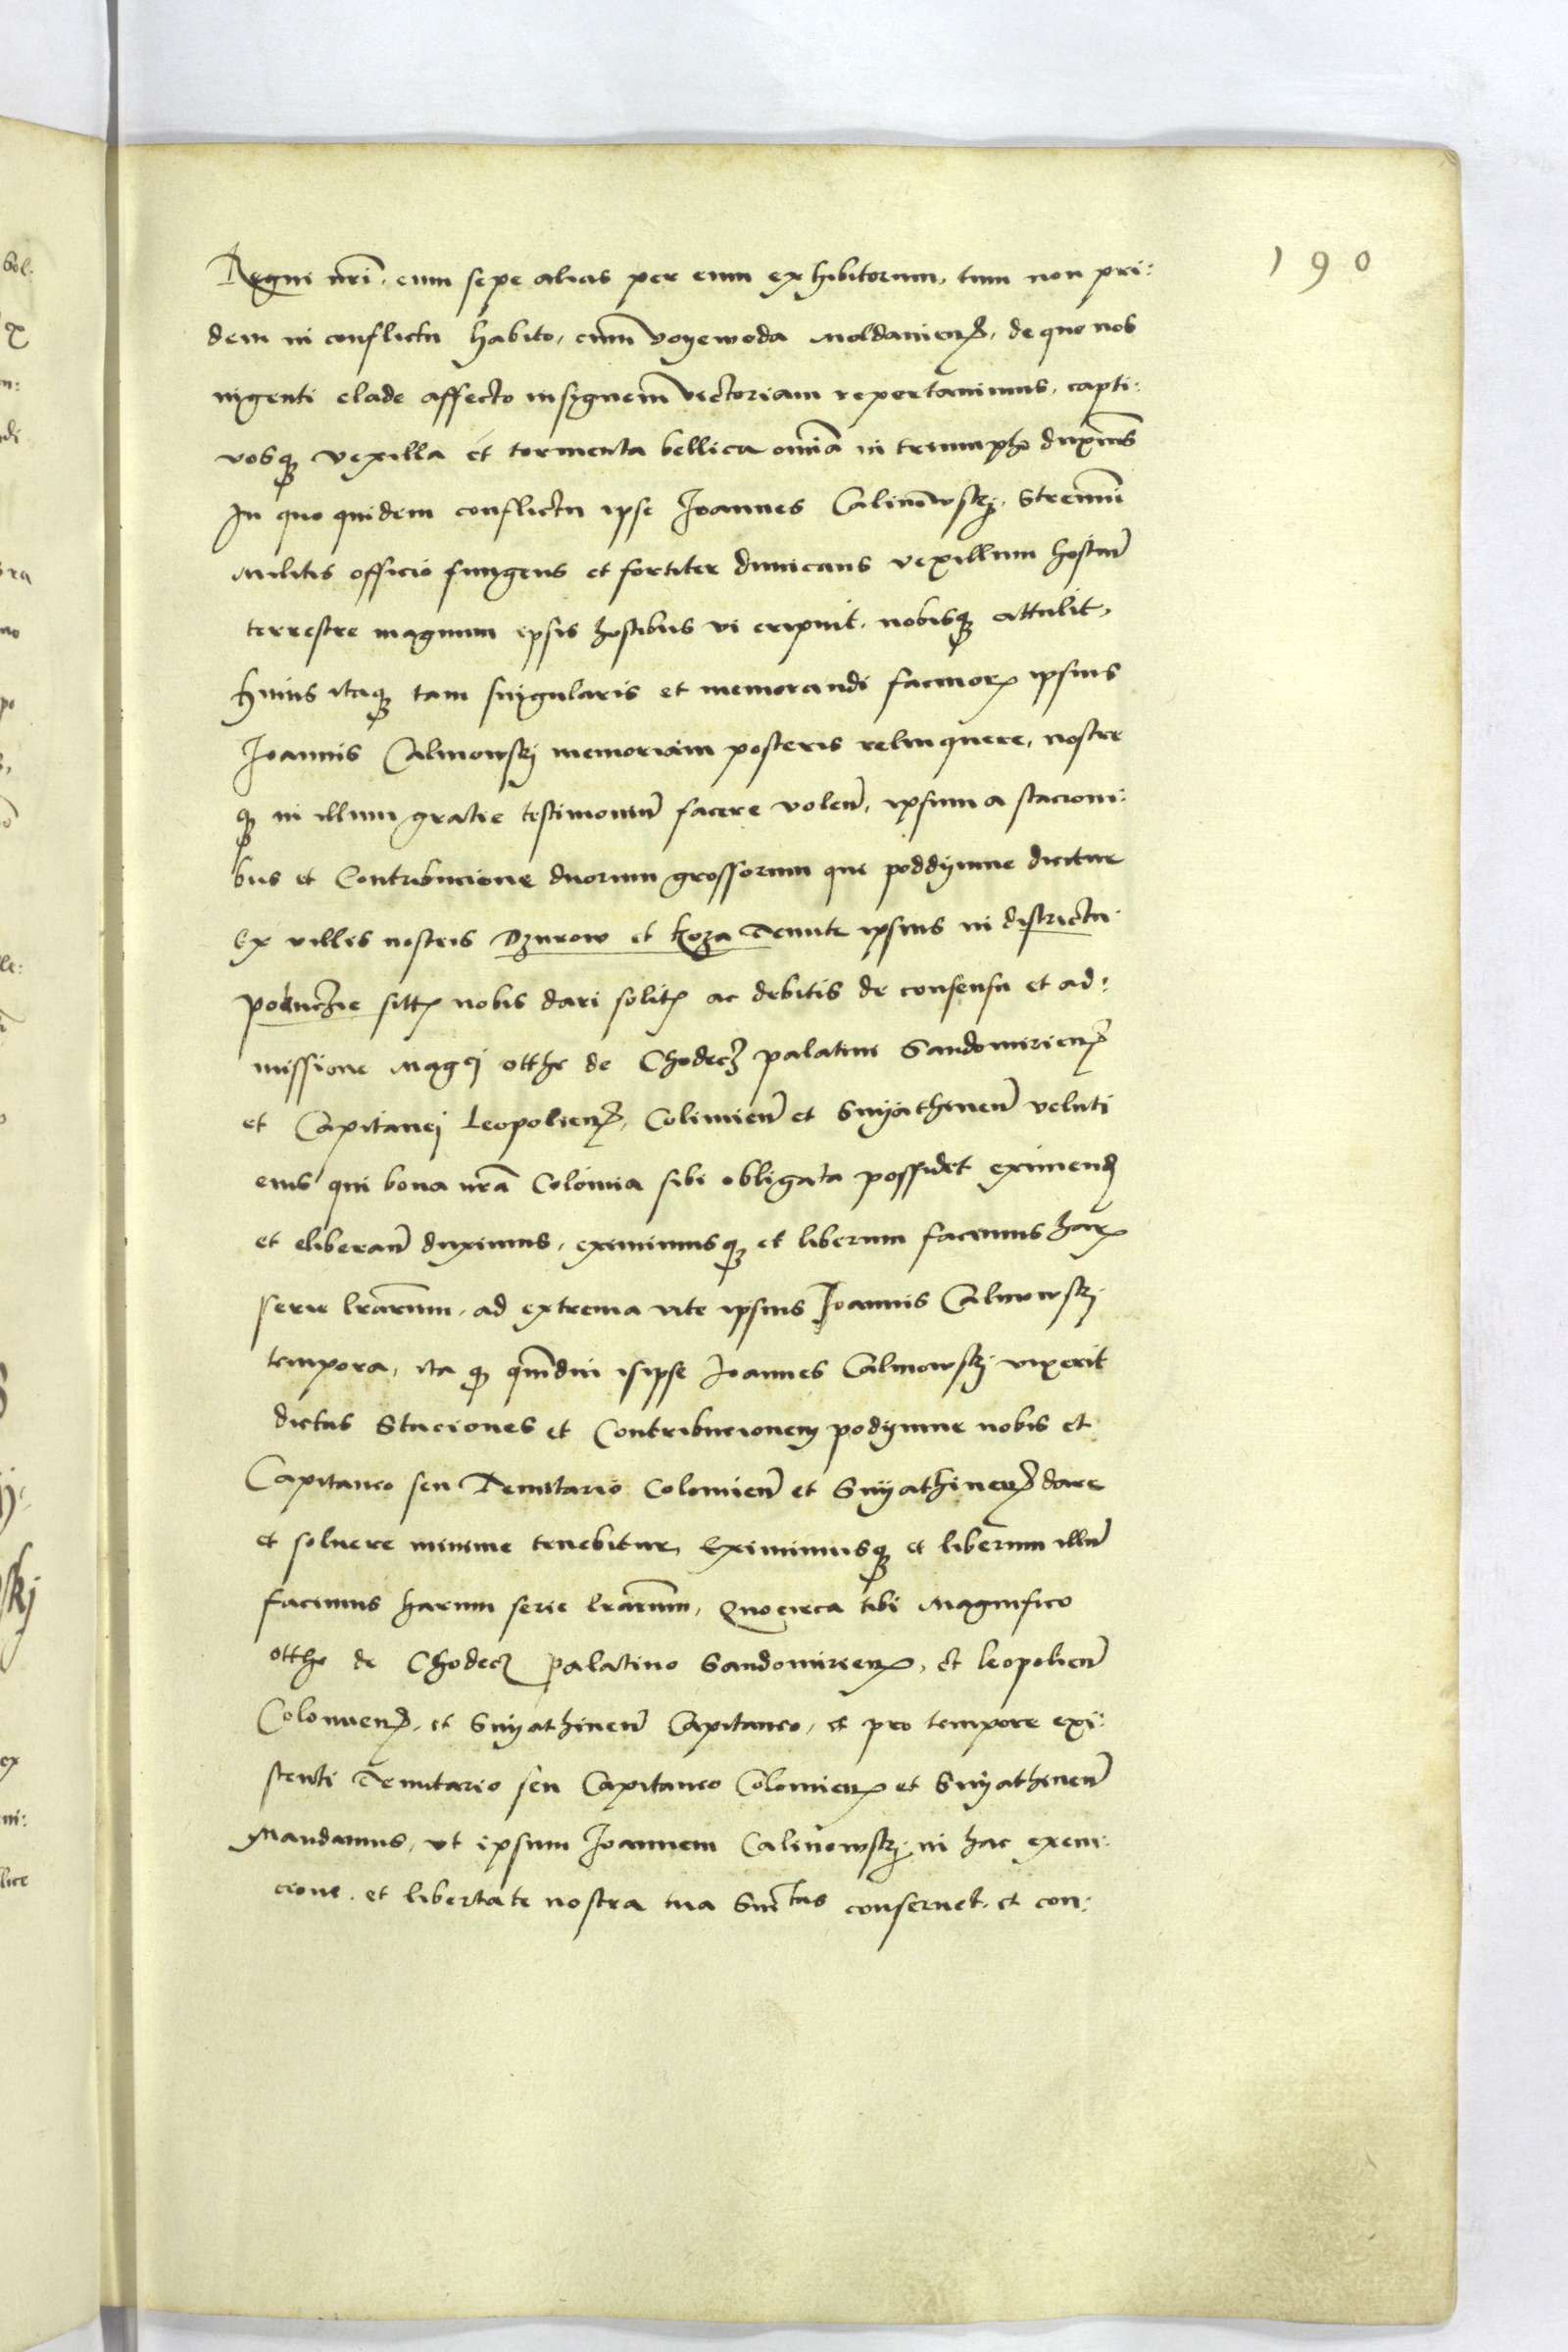 190
Regni nr̃i, cum sepe alias per eum exhibitorum, tum non pri:
dem in conflictu habito, cum voyewoda Moldauien̄, de quo nos
ingenti clade affecto insignem victoriam reportauimus, capti:
vosq̃ vexilla et tormenta bellica om̃ia in triumpho duximus
In quo quidem conflictu ipse Ioannes Calinowskj, Strennui
militis officio fungens et fortiter dimicans vexillum hostiũ
terrestre magnum ipsis hostibus vi eripuit, nobisq̃ attulit,
huius itaq̃ tam singularis et memorandi facinor̃ ipsius
Ioannis Calinowskj memoriam posteris relinquere, nostre
q̃ in illum gratie testimoniũ facere volen̄, ipsum a stacioni:
bus et Contribucione duorum grossorum que poddymne dicitur
Ex villis nostris Dzurow et Koza Tenute ipsius in districtu
pocuczie sitt̃ nobis dari solit̃ ac debitis de consensu et ad:
missione Mag̃cj otthe de Chodecz palatini Sandomirien̄
et Capitanej Leopolien̄, Colimien̄ et Snyathinen̄ veluti
eius qui bona nr̃a Colomia sibi obligata possidet eximend̃
et eliberan̄ duximus, eximimusq̃ et liberum facimus har̃
serie lr̃arum, ad extrema vite ipsius Ioannis Calinowskj
tempora, ita q̃ q̃mdiu is ipse Ioannes Calinowskj vixerit
dictas Staciones et Contribucionem podymne nobis et
Capitaneo seu Tenutario Colomien̄ et Snyathinen̄ dare
et soluere minime tenebitur, Eximimusq̃ et liberum illũ
facimus harum serie lr̃arum, Quocirca tibi Magnifico
otthe de Chodecz palatino Sandomirien̄, et Leopolien̄
Colomien̄, et Snyathinen̄ Capitaneo, et pro tempore exi:
stenti Tenutario seu Capitaneo Colomien̄ et Snyathinen̄
Mandamus, vt ipsum Ioannem Calinowskj in hac exem:
cione et libertate nostra tua Sin̄tas conseruet, et con: